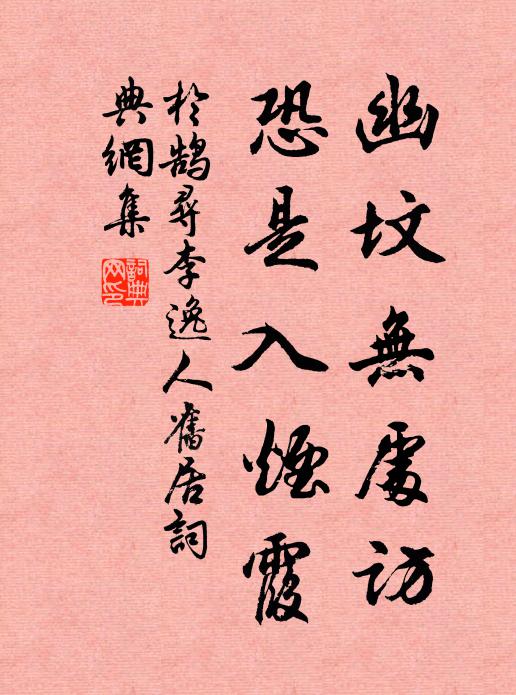 幽墳無處訪
恐是入煙霞
於鵠尋李逸人舊居詞
典網集
詞典
网印